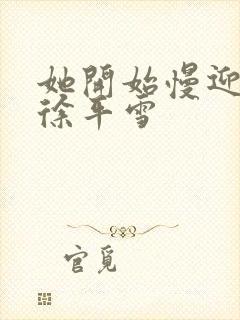 她開始慢迎
徐平雪
官覓